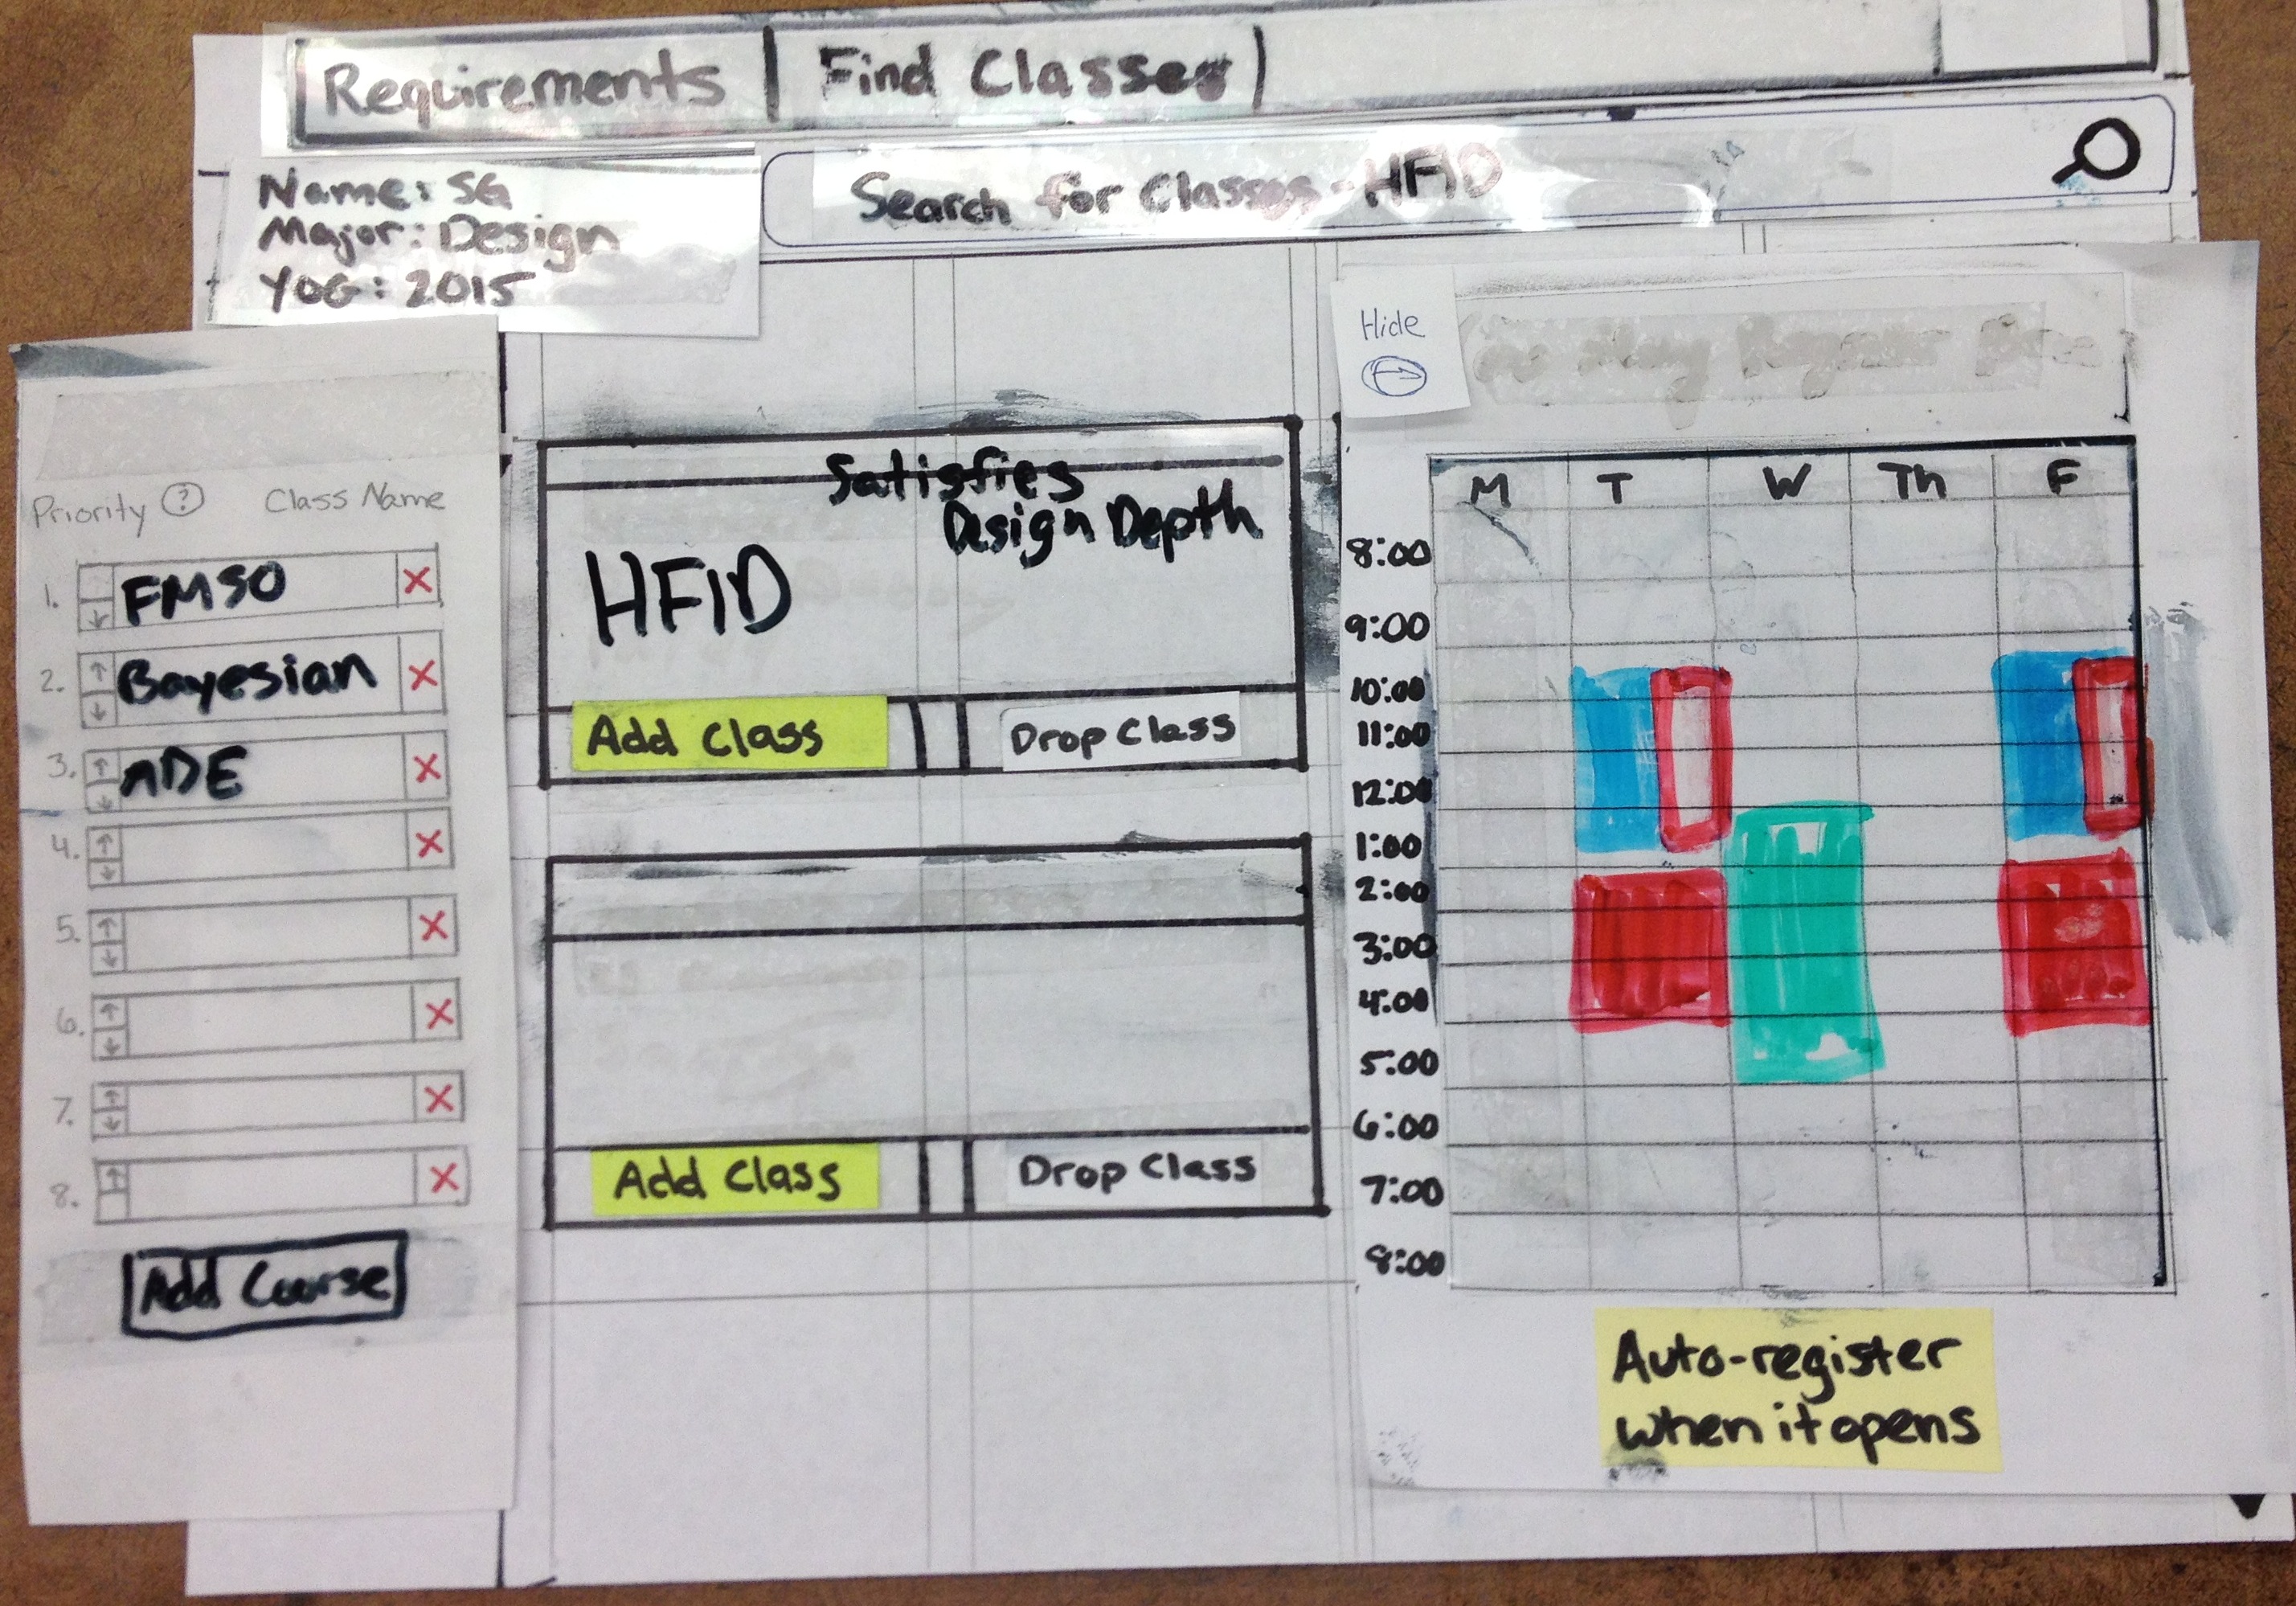 Requirements
Find Classes
Name: SG
Major: Design
YOG: 2015
Search for Classes - HFID
Hide
Priority ? Class Name
1. FMSO X
2. Bayesian X
3. MDE X
4. X
5. X
6. X
7. X
8. X
Add Course
Satisfies
Design Depth
HFID
Add Class
Drop Class
Add Class
Drop Class
M T W Th F
8:00
9:00
10:00
11:00
12:00
1:00
2:00
3:00
4:00
5:00
6:00
7:00
8:00
Auto-register
when it opens